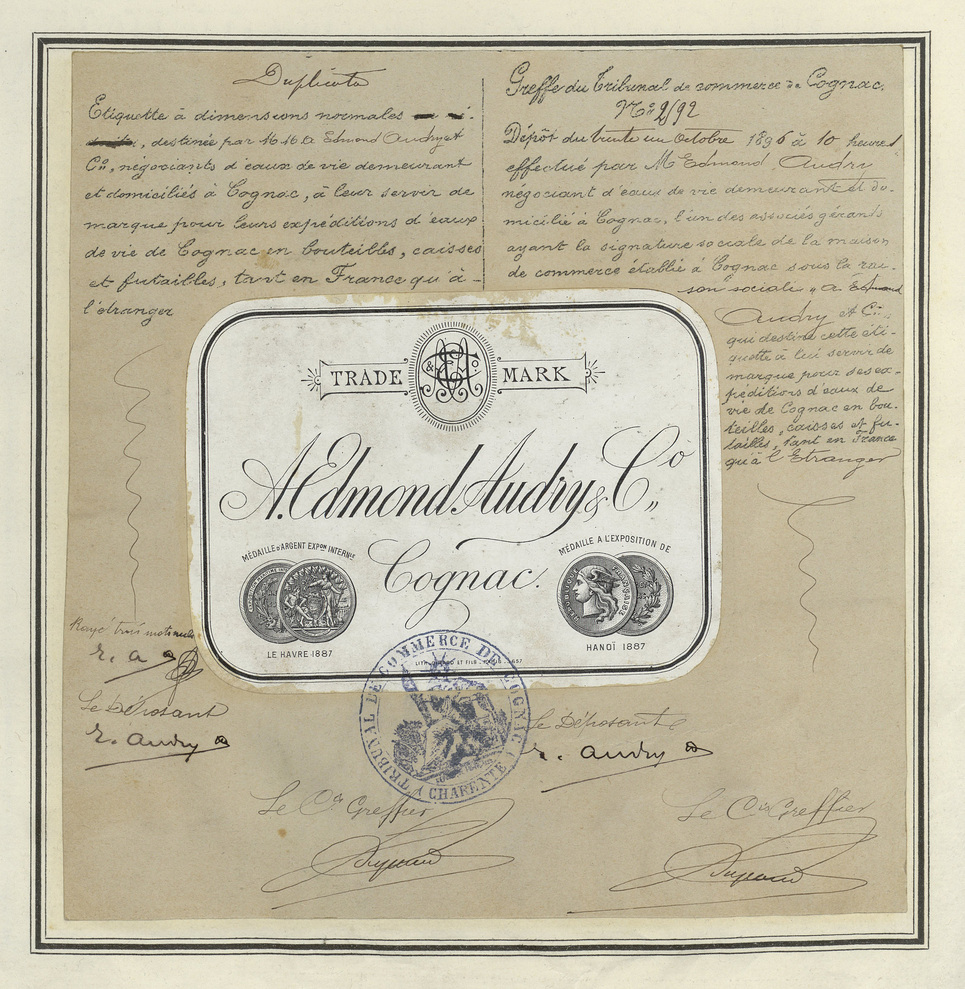 Duplicata
Etiquette à dimensions normales
destinée par M.M. A Edmond Audry et
Cie, négociants d'eaux de vie demeurant
et domiciliés à Cognac, à leur servir de
marque pour leurs expéditions d'eaux
de vie de Cognac en bouteilles, caisses
et futailles, tant en France qu'à -
l'étranger
Rayé trois mots nuls
E. A
Le Déposant
E. Audry
Le Cis Greffier
Greffe du Tribunal de commerce de Cognac.
Dépôt du trente un Octobre 1896 à 10 heures
effectué par Mr Edmond Audry
négociant d'eaux de vie demeurant et do-
micilié à Cognac, l'un des associés gérants
ayant la signature sociale de la maison
de commerce établie à Cognac sous la rai-
son sociale "A. Edmond
Audry et Cie"
qui destine cette éti-
quette à lui servir de
marque pour ses ex-
péditions d'eaux de
vie de Cognac en bou-
teilles, caisses et fu-
tailles, tant en France
qu'à l'Etranger
Le Déposant
E. Audry
Le Cis Greffier
TRADE MARK
A. Edmond Audry & Co
Cognac.
MÉDAILLE D'ARGENT EXPON INTERNLE
LE HAVRE 1887
MÉDAILLE A L'EXPOSITION DE
HANOÏ 1887
TRIBUNAL DE COMMERCE DE COGNAC
(CHARENTE)